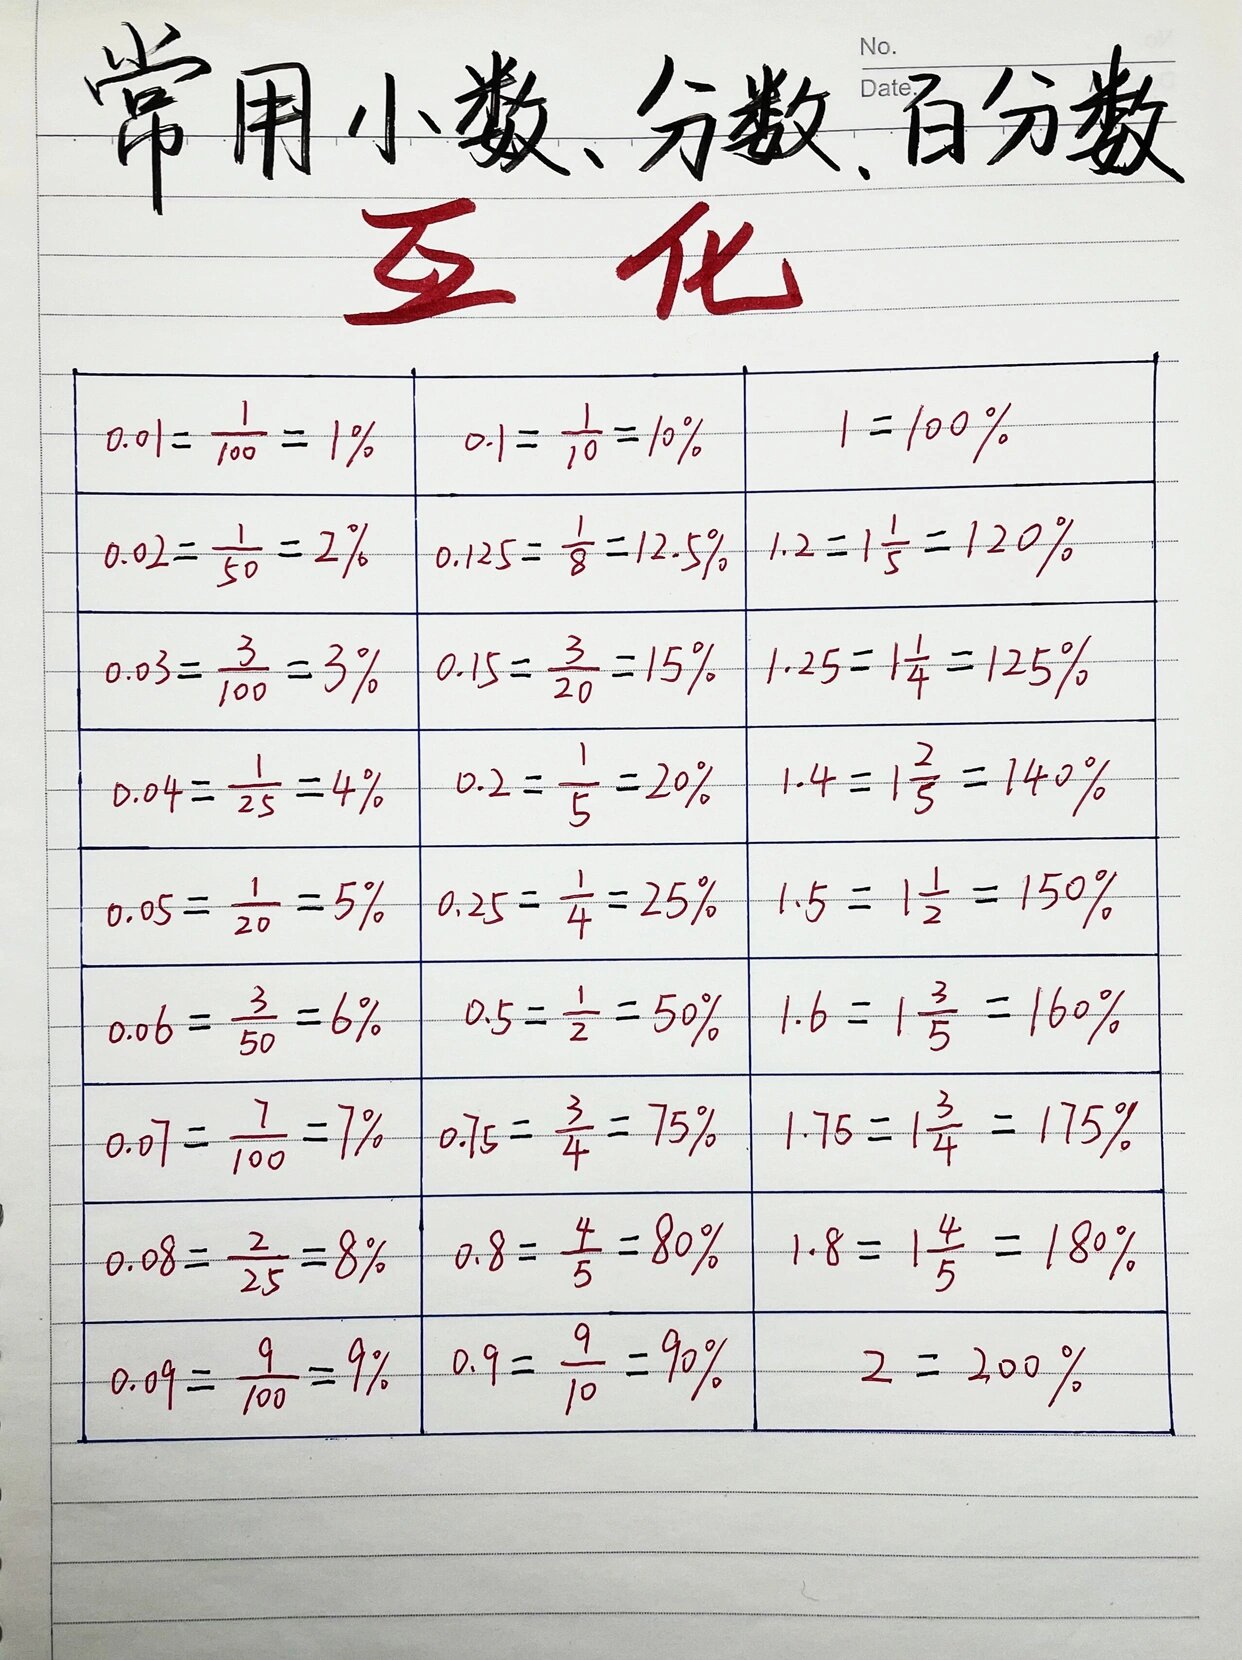 No.
Date.
常用小数、分数、百分数
互化
0.01 = 1/100 = 1% 0.1 = 1/10 = 10% 1 = 100%
0.02 = 1/50 = 2% 0.125 = 1/8 = 12.5% 1.2 = 1 1/5 = 120%
0.03 = 3/100 = 3% 0.15 = 3/20 = 15% 1.25 = 1 1/4 = 125%
0.04 = 1/25 = 4% 0.2 = 1/5 = 20% 1.4 = 1 2/5 = 140%
0.05 = 1/20 = 5% 0.25 = 1/4 = 25% 1.5 = 1 1/2 = 150%
0.06 = 3/50 = 6% 0.5 = 1/2 = 50% 1.6 = 1 3/5 = 160%
0.07 = 7/100 = 7% 0.75 = 3/4 = 75% 1.75 = 1 3/4 = 175%
0.08 = 2/25 = 8% 0.8 = 4/5 = 80% 1.8 = 1 4/5 = 180%
0.09 = 9/100 = 9% 0.9 = 9/10 = 90% 2 = 200%